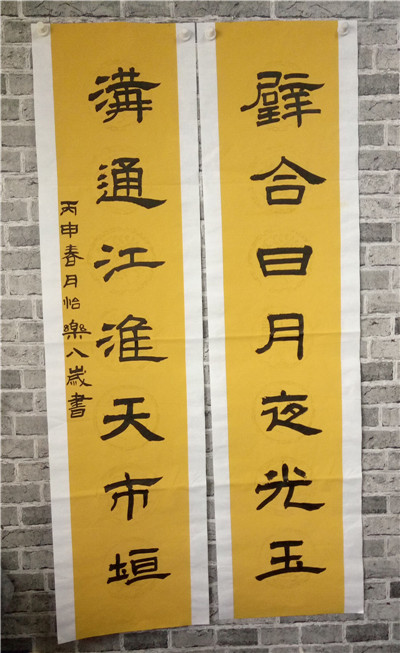 璧合日月夜光玉
溝通江淮天市垣
丙申春月怡樂八歲書